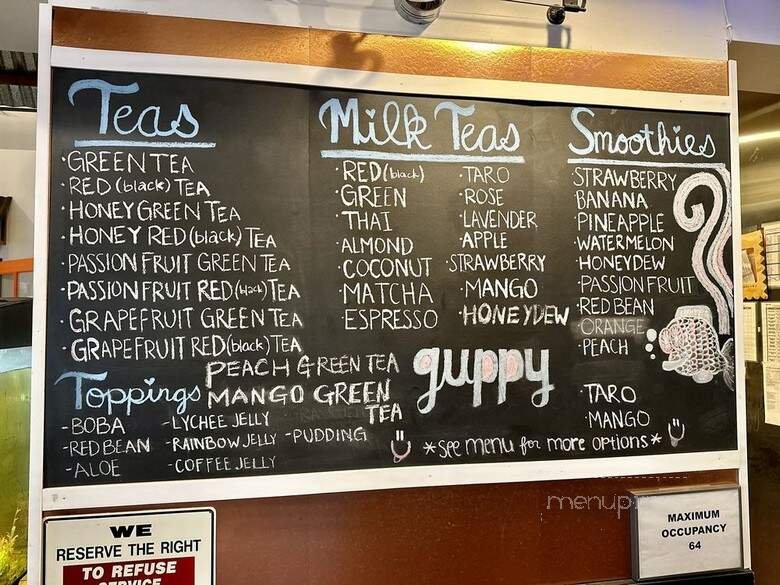 Teas
·GREEN TEA
·RED (black) TEA
·HONEY GREEN TEA
·HONEY RED (black) TEA
·PASSION FRUIT GREEN TEA
·PASSION FRUIT RED (black) TEA
·GRAPEFRUIT GREEN TEA
·GRAPEFRUIT RED (black) TEA
PEACH GREEN TEA
MANGO GREEN
TEA
Toppings
-BOBA
-RED BEAN
-ALOE
-LYCHEE JELLY
-RAINBOW JELLY
-COFFEE JELLY
-PUDDING
Milk Teas
·RED (black)
·GREEN
·THAI
·ALMOND
·COCONUT
·MATCHA
·ESPRESSO
·TARO
·ROSE
·LAVENDER
·APPLE
·STRAWBERRY
·MANGO
·HONEYDEW
guppy
*see menu for more options*
Smoothies
·STRAWBERRY
BANANA
·PINEAPPLE
·WATERMELON
·HONEYDEW
·PASSION FRUIT
·RED BEAN
·ORANGE
·PEACH
·TARO
·MANGO
WE
RESERVE THE RIGHT
TO REFUSE
SERVICE
MAXIMUM
OCCUPANCY
64